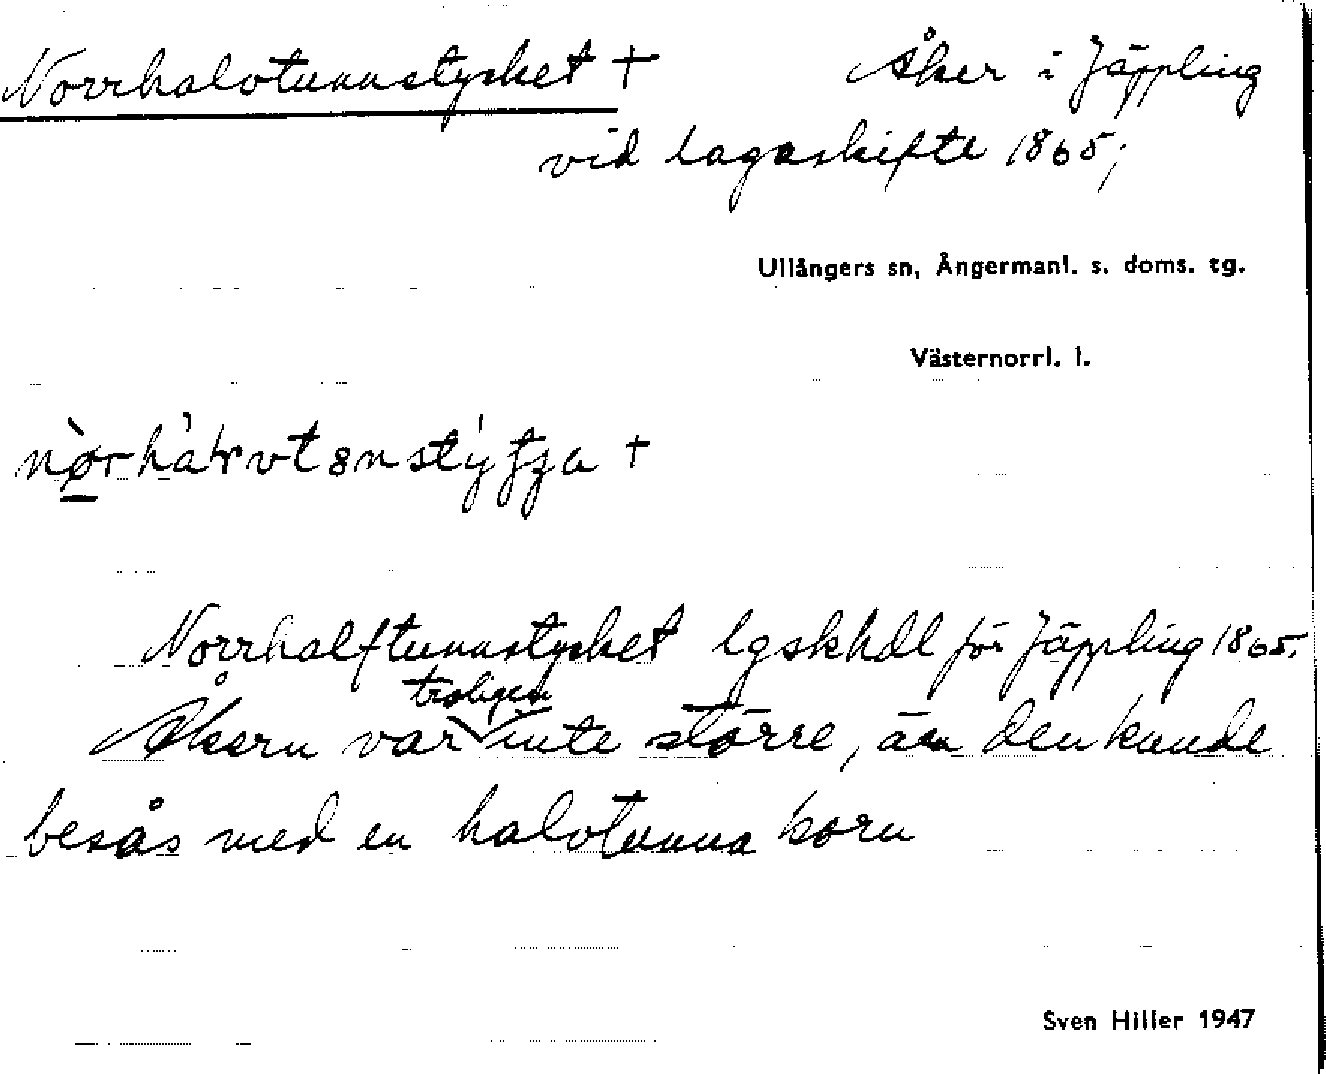 Norrhalvtunnstycket +
Åker i Jäppling
vid lagaskifte 1865;
Ullångers sn, Ångermanl. s. doms. tg.
Västernorrl. l.
Norrhalftunnstycket lgskhdl för Jäppling 1865.
Åkern var troligen inte större, än den kunde
besås med en halvtunna korn
Sven Hiller 1947